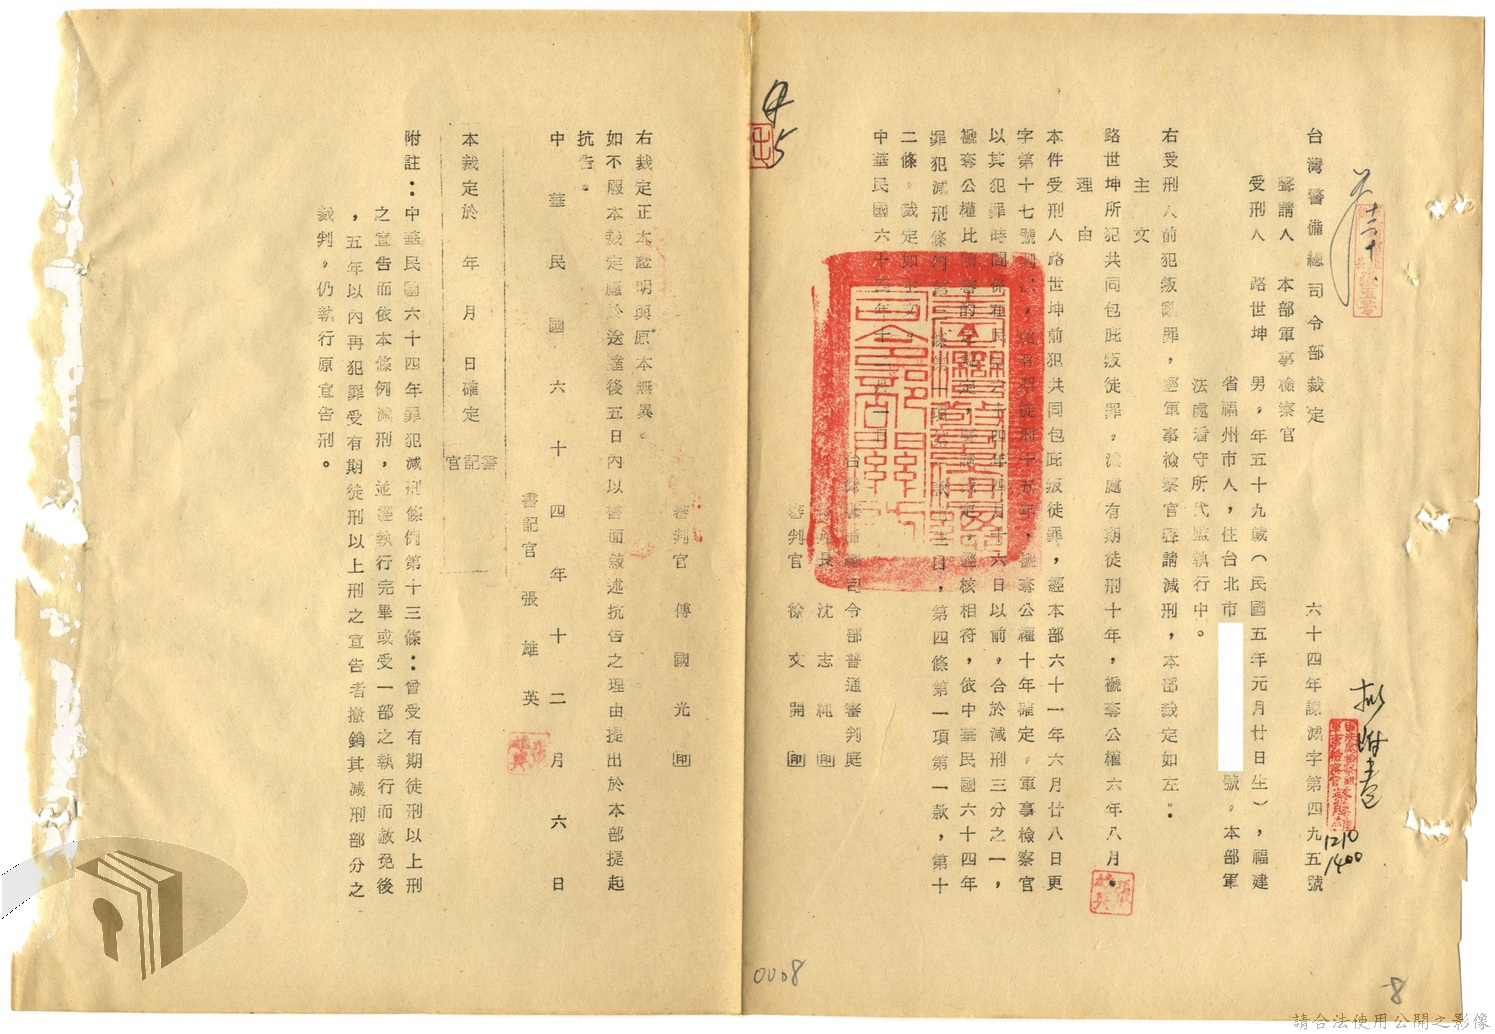 台灣警備總司令部裁定　六十四年諫減字第四九五號
聲請人　本部軍事檢察官
受刑人　路世坤　男，年五十九歲（民國五年元月廿日生），福建
省福州市人，住台北市　號。本部軍
法處看守所代監執行中。
右受刑人前犯叛亂罪，經軍事檢察官聲請減刑，本部裁定如左：
主文
路世坤所犯共同包庇叛徒罪，減處有期徒刑十年，褫奪公權六年八月。
理由
本件受刑人路世坤前犯共同包庇叛徒罪，經本部六十一年六月廿八日更
字第十七號　有期徒刑十五年，褫奪公權十年確定。軍事檢察官
以其犯罪時間係在民國六十四年四月十六日以前，合於減刑三分之一，
褫奪公權比　經核相符，依中華民國六十四年
罪犯減刑條例第　款　第四條第一項第一款，第十
二條。裁定如主文。
中華民國六十四年十二月一日
台灣警備總司令部普通審判庭
審判長　沈志純　印
審判官　徐文開　印
審判官　傅國光　印
右裁定正本證明與原本無異。
如不服本裁定應於送達後五日內以書面敘述抗告之理由提出於本部提起
抗告。
中華民國六十四年十二月六日
書記官　張雄英
本裁定於　年　月　日確定
書記官
附註：中華民國六十四年罪犯減刑條例第十三條：曾受有期徒刑以上刑
之宣告而依本條例減刑，並經執行完畢或受一部之執行而赦免後
，五年以內再犯罪受有期徒刑以上刑之宣告者撤銷其減刑部分之
裁判，仍執行原宣告刑。
擬附卷
1210
1400
0008
8
請合法使用公開之影像